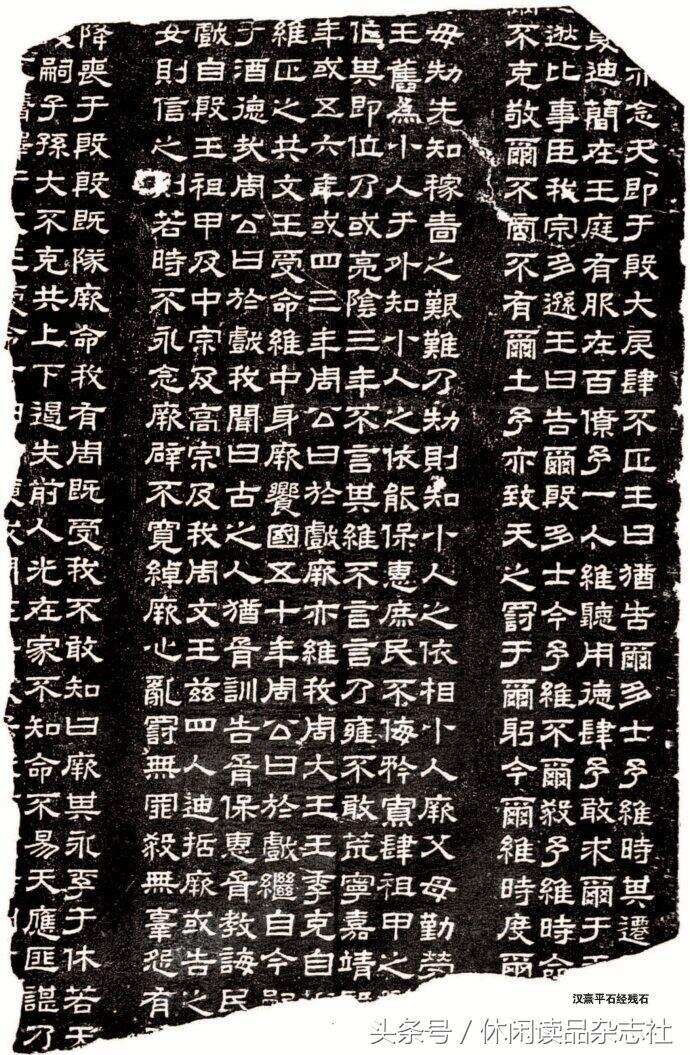 亦念天即于殷大戾肆不正王曰猶告爾多士予維時其遷
夏迪簡在王庭有服在百僚予一人維聽用德肆予敢求爾于天
逖比事臣我宗多遜王曰告爾殷多士今予維不爾殺予維時命
爾不克敬爾不啻不有爾土予亦致天之罰于爾躬今爾維時度爾
毋劮先知稼嗇之艱難乃劮則知小人之依相小人厥父母勤勞
王舊為小人于外知小人之依能保惠庶民不侮矜寡肆祖甲之
作其即位乃或亮陰三年不言其維不言言乃雍不敢荒寧嘉靖
年或五六年或四三年周公曰於戲厥亦維我周大王王季克自
維正之共文王受命維中身厥饗國五十年周公曰於戲繼自今嗣
于酒德哉周公曰於戲我聞曰古之人猶胥訓告胥保惠胥教誨民
戲自殷王祖甲及中宗及高宗及我周文王茲四人迪哲厥或告之
女則信之則若時不永念厥辟不寬綽厥心亂罰無罪殺無辜怨有
降喪于殷殷既隊厥命我有周既受我不敢知曰厥其永孚于休若天
嗣子孫大不克共上下遏失前人光在家不知命不易天應匪諶乃
汉熹平石经残石
头条号 / 休闲读品杂志社